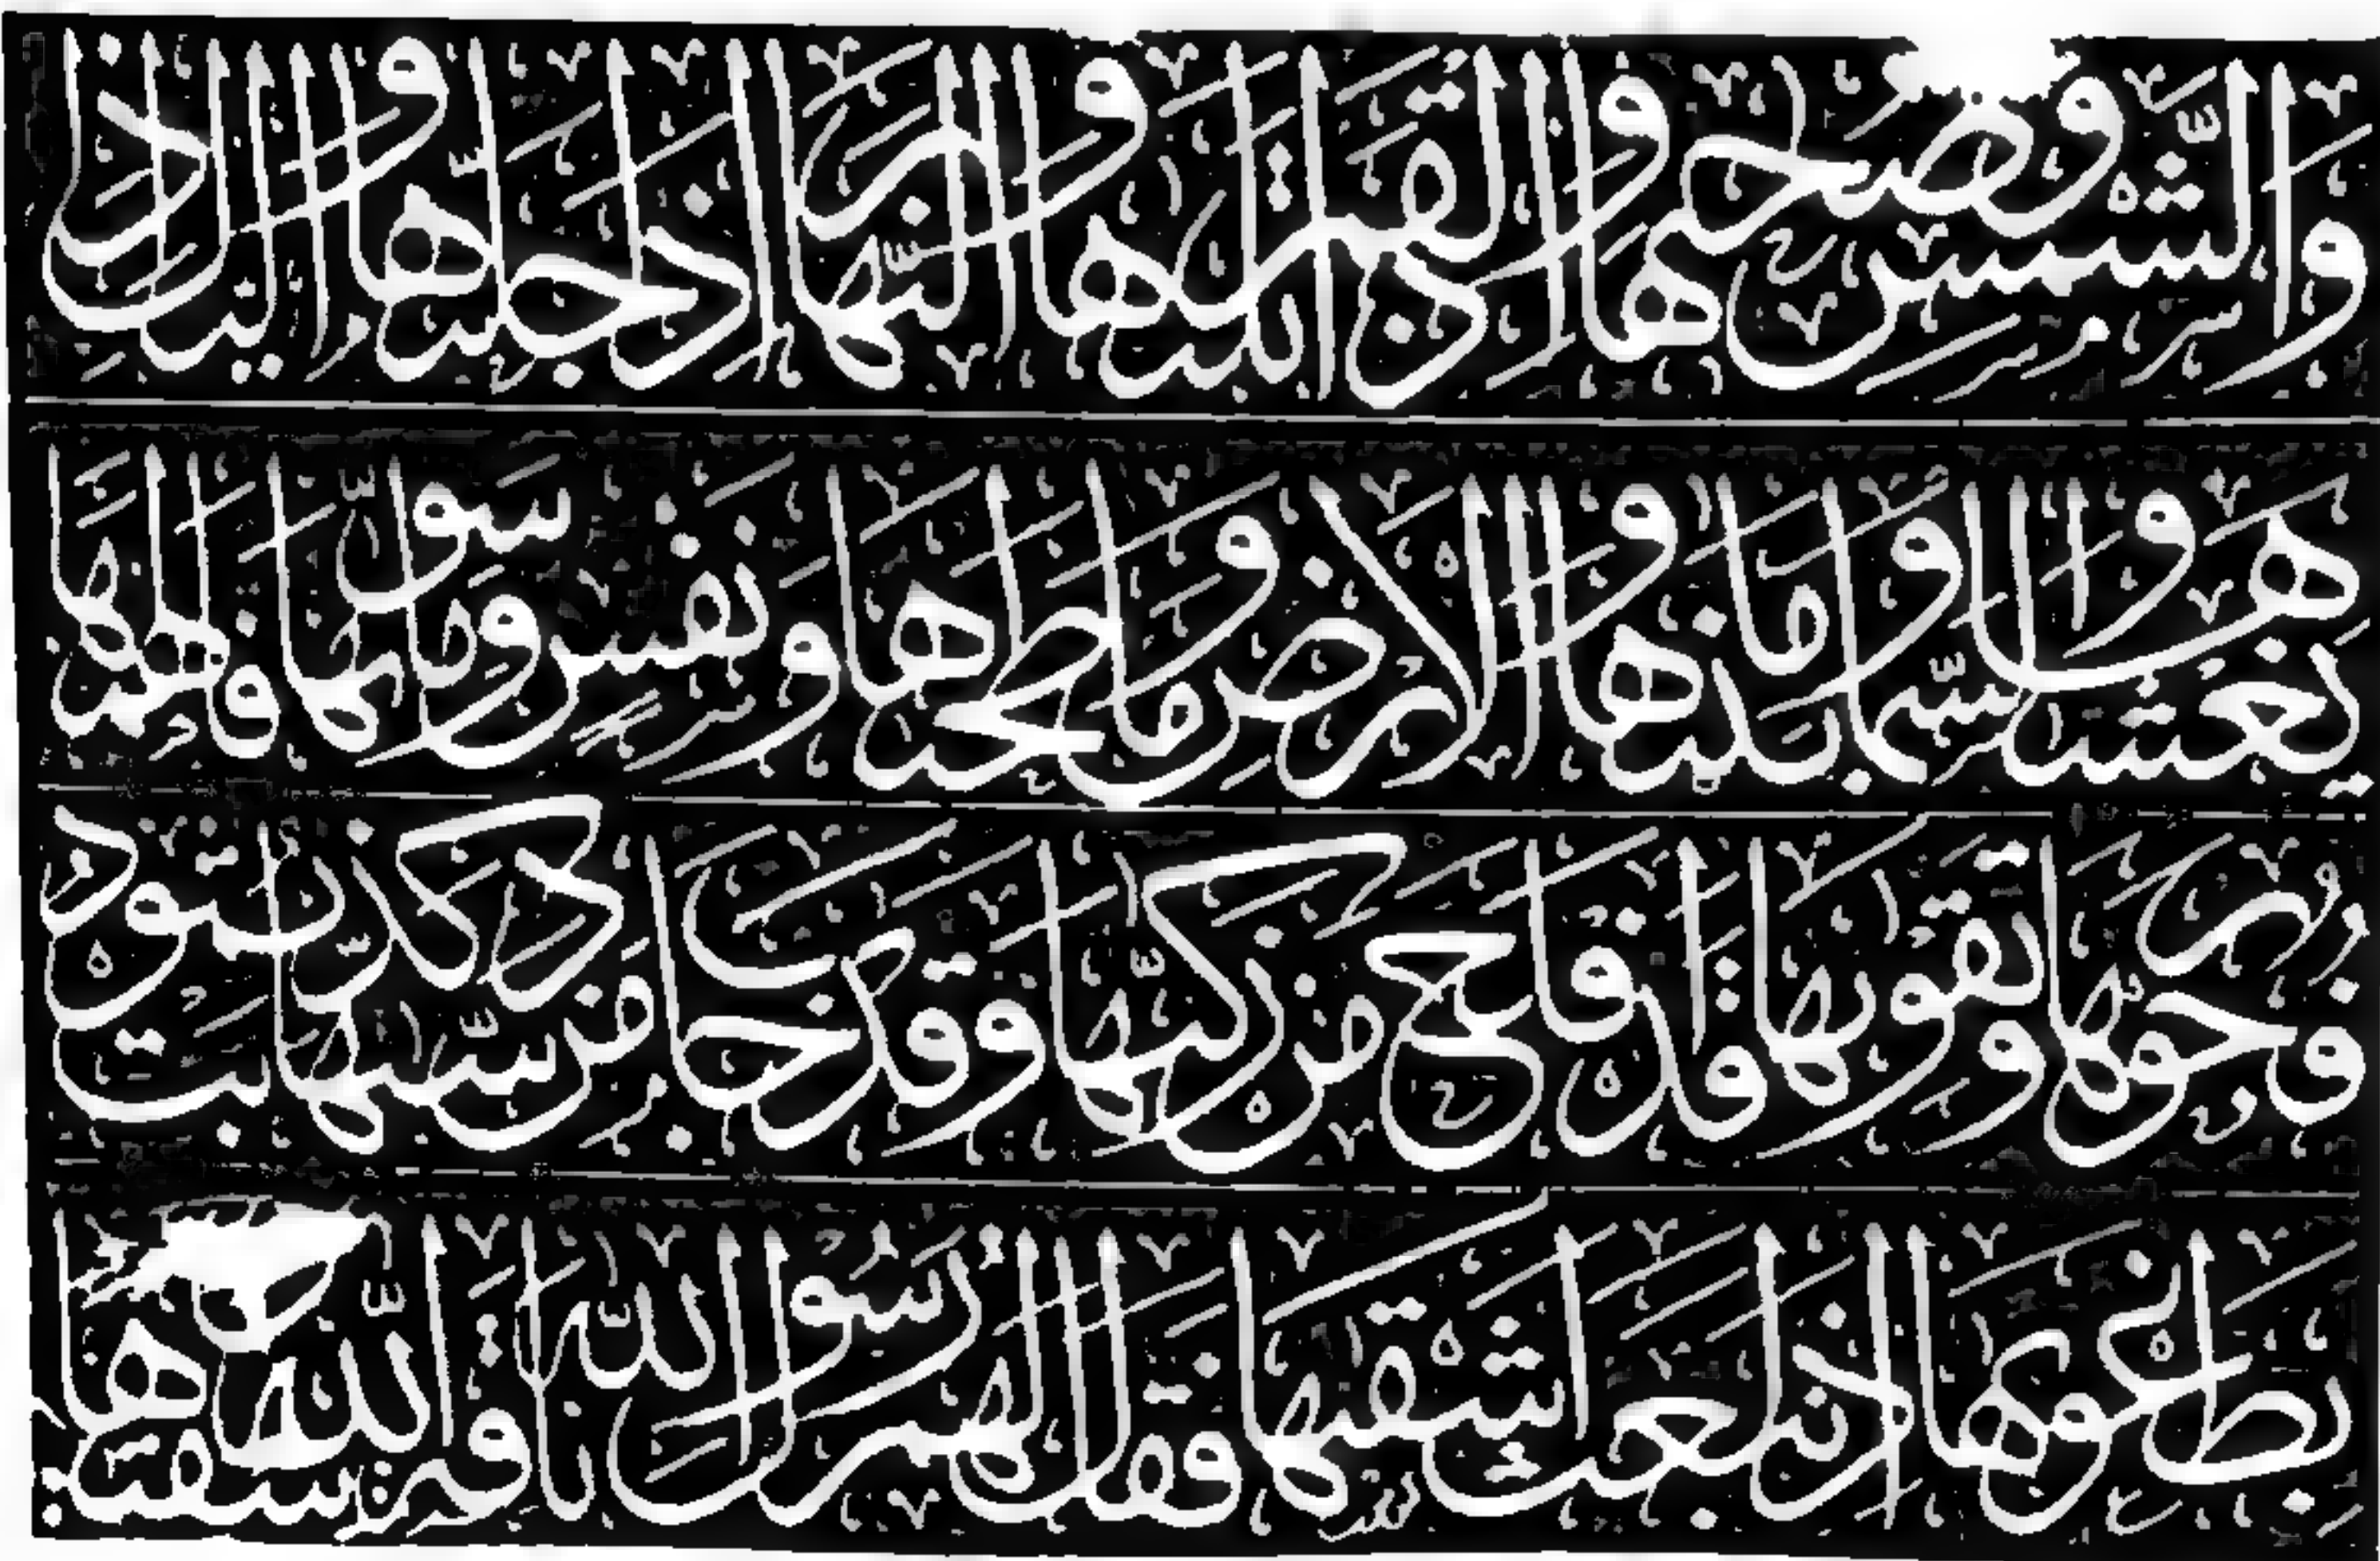 والشمس وضحىها والقمر اذا تلىها والنهار اذا جلىها واليل اذا
يغشىها والسما وما بنىها والارض وما طحىها ونفس وما سوىها فالهمها
فجورها وتقوىها قد افلح من زكىها وقد خاب من دسىها كذبت ثمود
بطغوىها اذ انبعث اشقىها فقال لهم رسول الله ناقة الله وسقيها